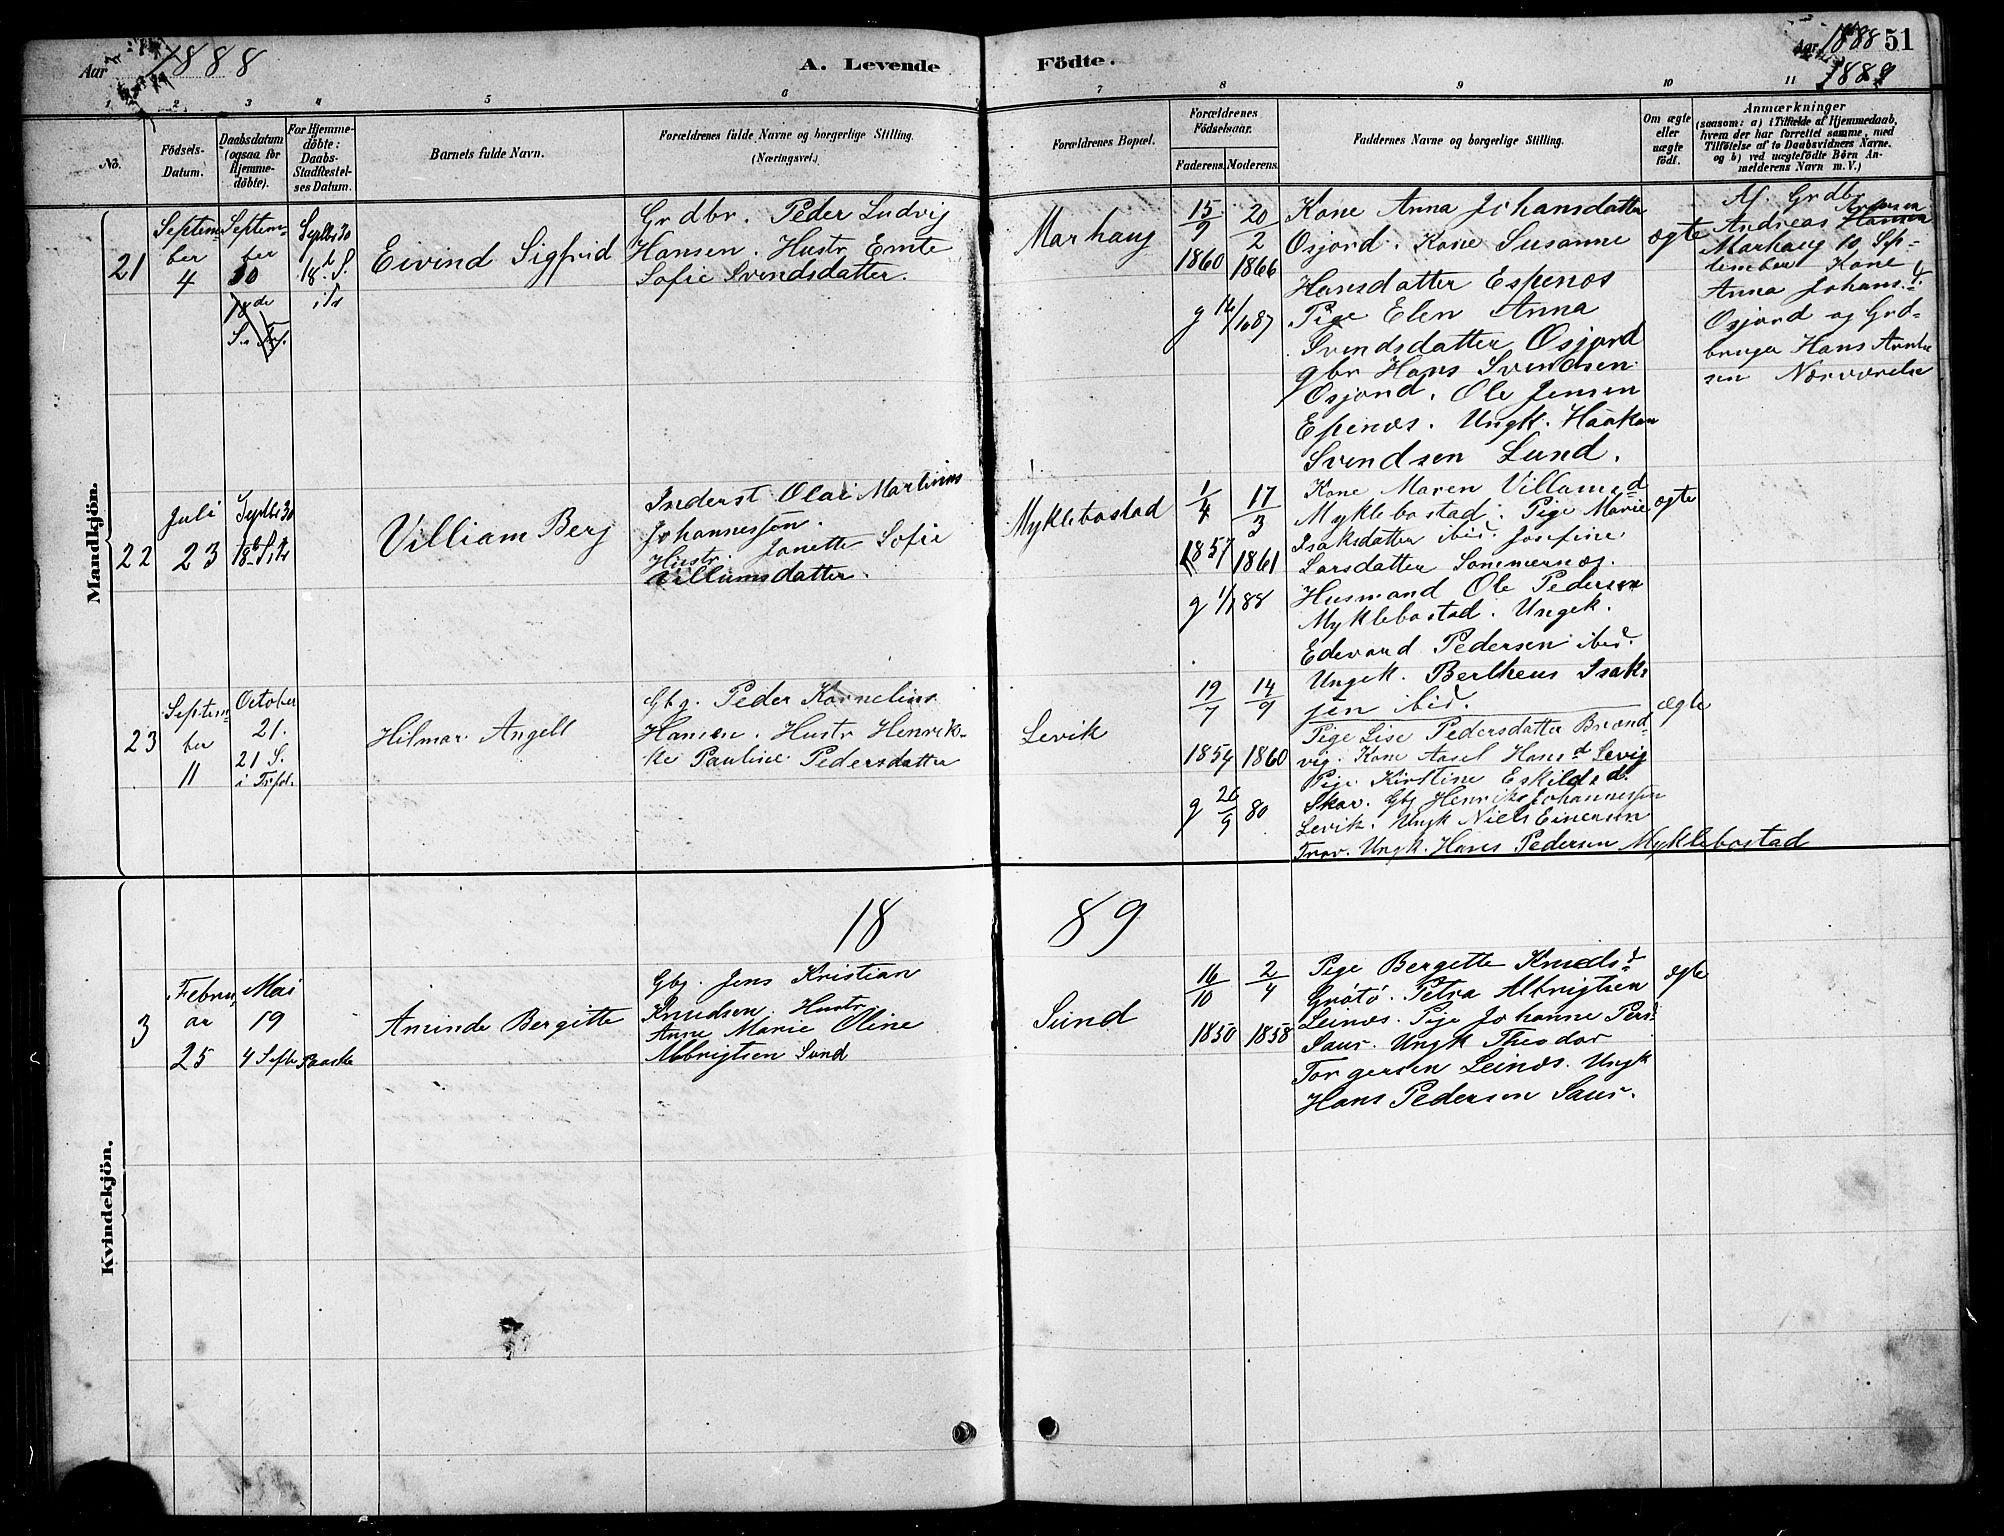 Aar 1888
A. Levende Födte.
Aar 1888 51
1889
1 2 3 4 5 6 7 8 9 10 11
No.
Födsels-
Datum.
Daabsdatum
(ogsaa for
Hjemme-
döbte).
For Hjemme-
döbte:
Daabs-
Stadfestel-
ses Datum.
Barnets fulde Navn.
Forældrenes fulde Navne og borgerlige Stilling.
(Næringsvei.)
Forældrenes Bopæl.
Forældrenes
Födselsaar.
Faderens. Moderens.
Faddernes Navne og borgerlige Stilling.
Om ægte
eller
uægte
født.
Anmærkninger
(saasom: a) i Tilfælde af Hjemmedaab,
hvem der har forrettet samme, med
Tilföielse af to Daabsvidners Navne.
og b) ved uægtefödte Börn An-
melderens Navn m. V.)
Mandkjön.
21
Septem-
ber
4
Septem-
ber
30
18de
S. Tr.
Septbr 30
18d S.
i Tr
Eivind Sigfrid
Grdbr. Peder Ludvig
Hansen. Hustr Emte
Sofie Svendsdatter.
Marhaug
15/9
1860
20/2
1866
g 16/10 87
Kone Anna Johansdatter
Osjord. Kone Susanne
Hansdatter Espenes
Pige Elen Anna
Svendsdatter Osjord
gbr Hans Svendsen
Osjord. Ole Jensen
Espenes. Ungk. Haakon
Svendsen Lund.
ægte
Af Grdbr
Andreas Hansen
Marhaug 10 Sep-
tember Kone
Anna Johansd.
Osjord og Grd-
bruger Hans Arnt-
sen Nærværelse
22
Juli
23
Septbr 30
18d S. i Tr
Villiam Berg
Inderst Olai Martinus
Johannessen.
Hustr. Janette Sofie
Villumsdatter.
Myklebostad
1/4
1857
17/3
1861
g 1/1 88
Kone Maren Villumsd
Myklebostad. Pige Marie
Isaksdatter ibid. Josefine
Larsdatter Sommernes.
Husmand Ole Pedersen
Myklebostad. Ungk.
Edevard Pedersen ibid.
Ungk. Bertheus Isak-
sen ibid.
ægte
23
Septem-
ber
11
October
21.
21 S.
i Trefol.
Hilmar Angell
Gbg. Peder Kornelius
Hansen. Hustr Henrik-
ke Pauline Pedersdatter
Levik
19/7
1854
14/9
1860
g 26/9 80
Pige Lise Pedersdatter Brænd-
vig. Kone Aasel Hansd Levig
Pige Kirstine Eskilsd.
Skav. Gbg Henrik Johannessen
Levik. Ungk Niels Einersen
Trav. Ungk. Hans Pedersen Myklebostad
ægte
18 89
Kvindekjön.
3
Febru-
ar
25
Mai
19
4 S efter Paaske
Aminda Bergitte
Gbg. Jens Kristian
Knudsen. Hustr
Anne Marie Oline
Albrigtsen Sund
Sund
16/10
1850
2/4
1858
Pige Bergette Knudsd
Grøtø. Petra Albrigtsen
Leines. Pige Johanne Pers
Saur. Ungk Theodor
Torgersen Leines. Ungk
Hans Pedersen Saur.
ægte